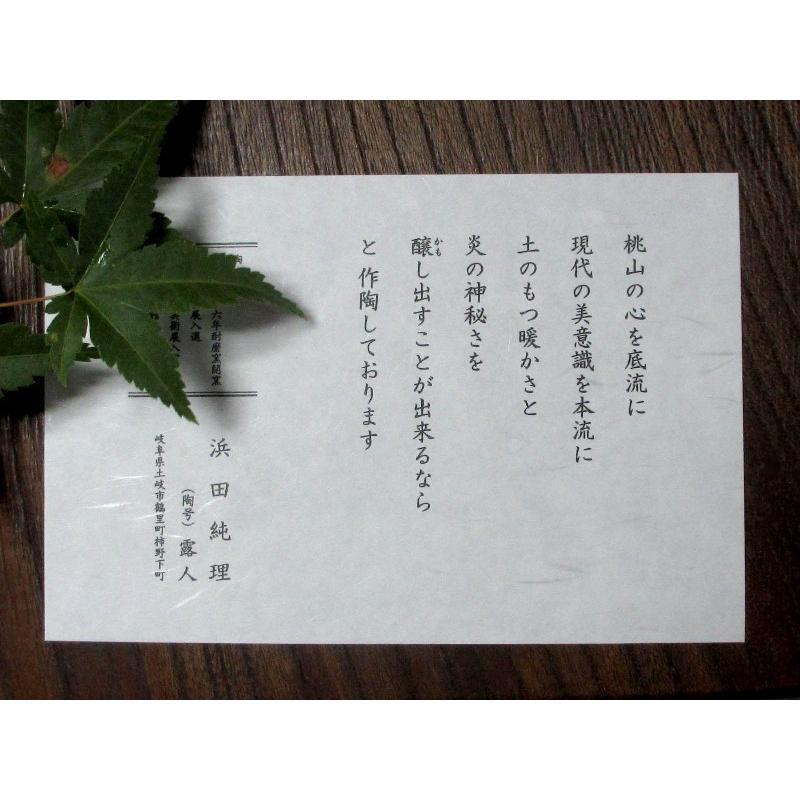 桃山の心を底流に
現代の美意識を本流に
土のもつ暖かさと
炎の神秘さを
醸し出すことが出来るなら
かも
と 作陶しております
浜田純理
(陶号) 露人
岐阜県土岐市鶴里町柿野下町
六年耐磨窯開窯
展入選
芸術展入